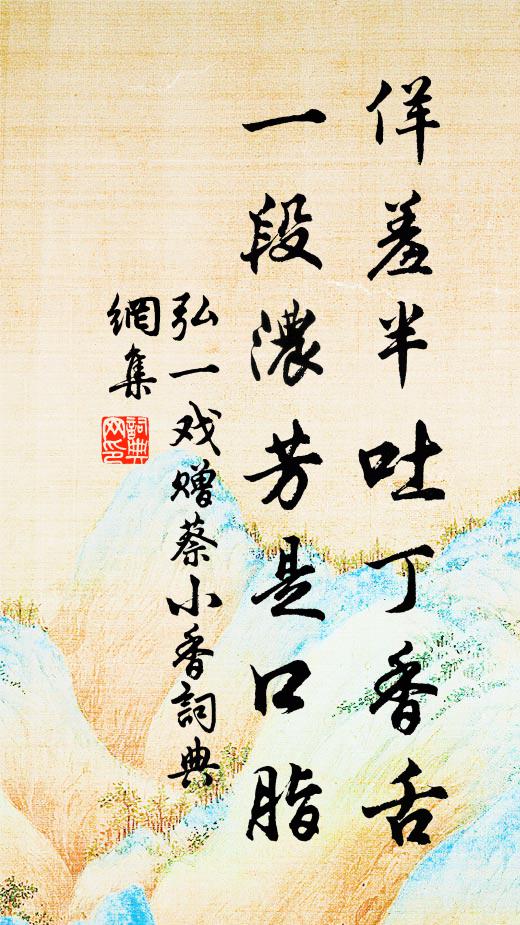 佯羞半吐丁香舌
一段濃芳是口脂
弘一戏贈蔡小香詞典
網集
詞典
网印